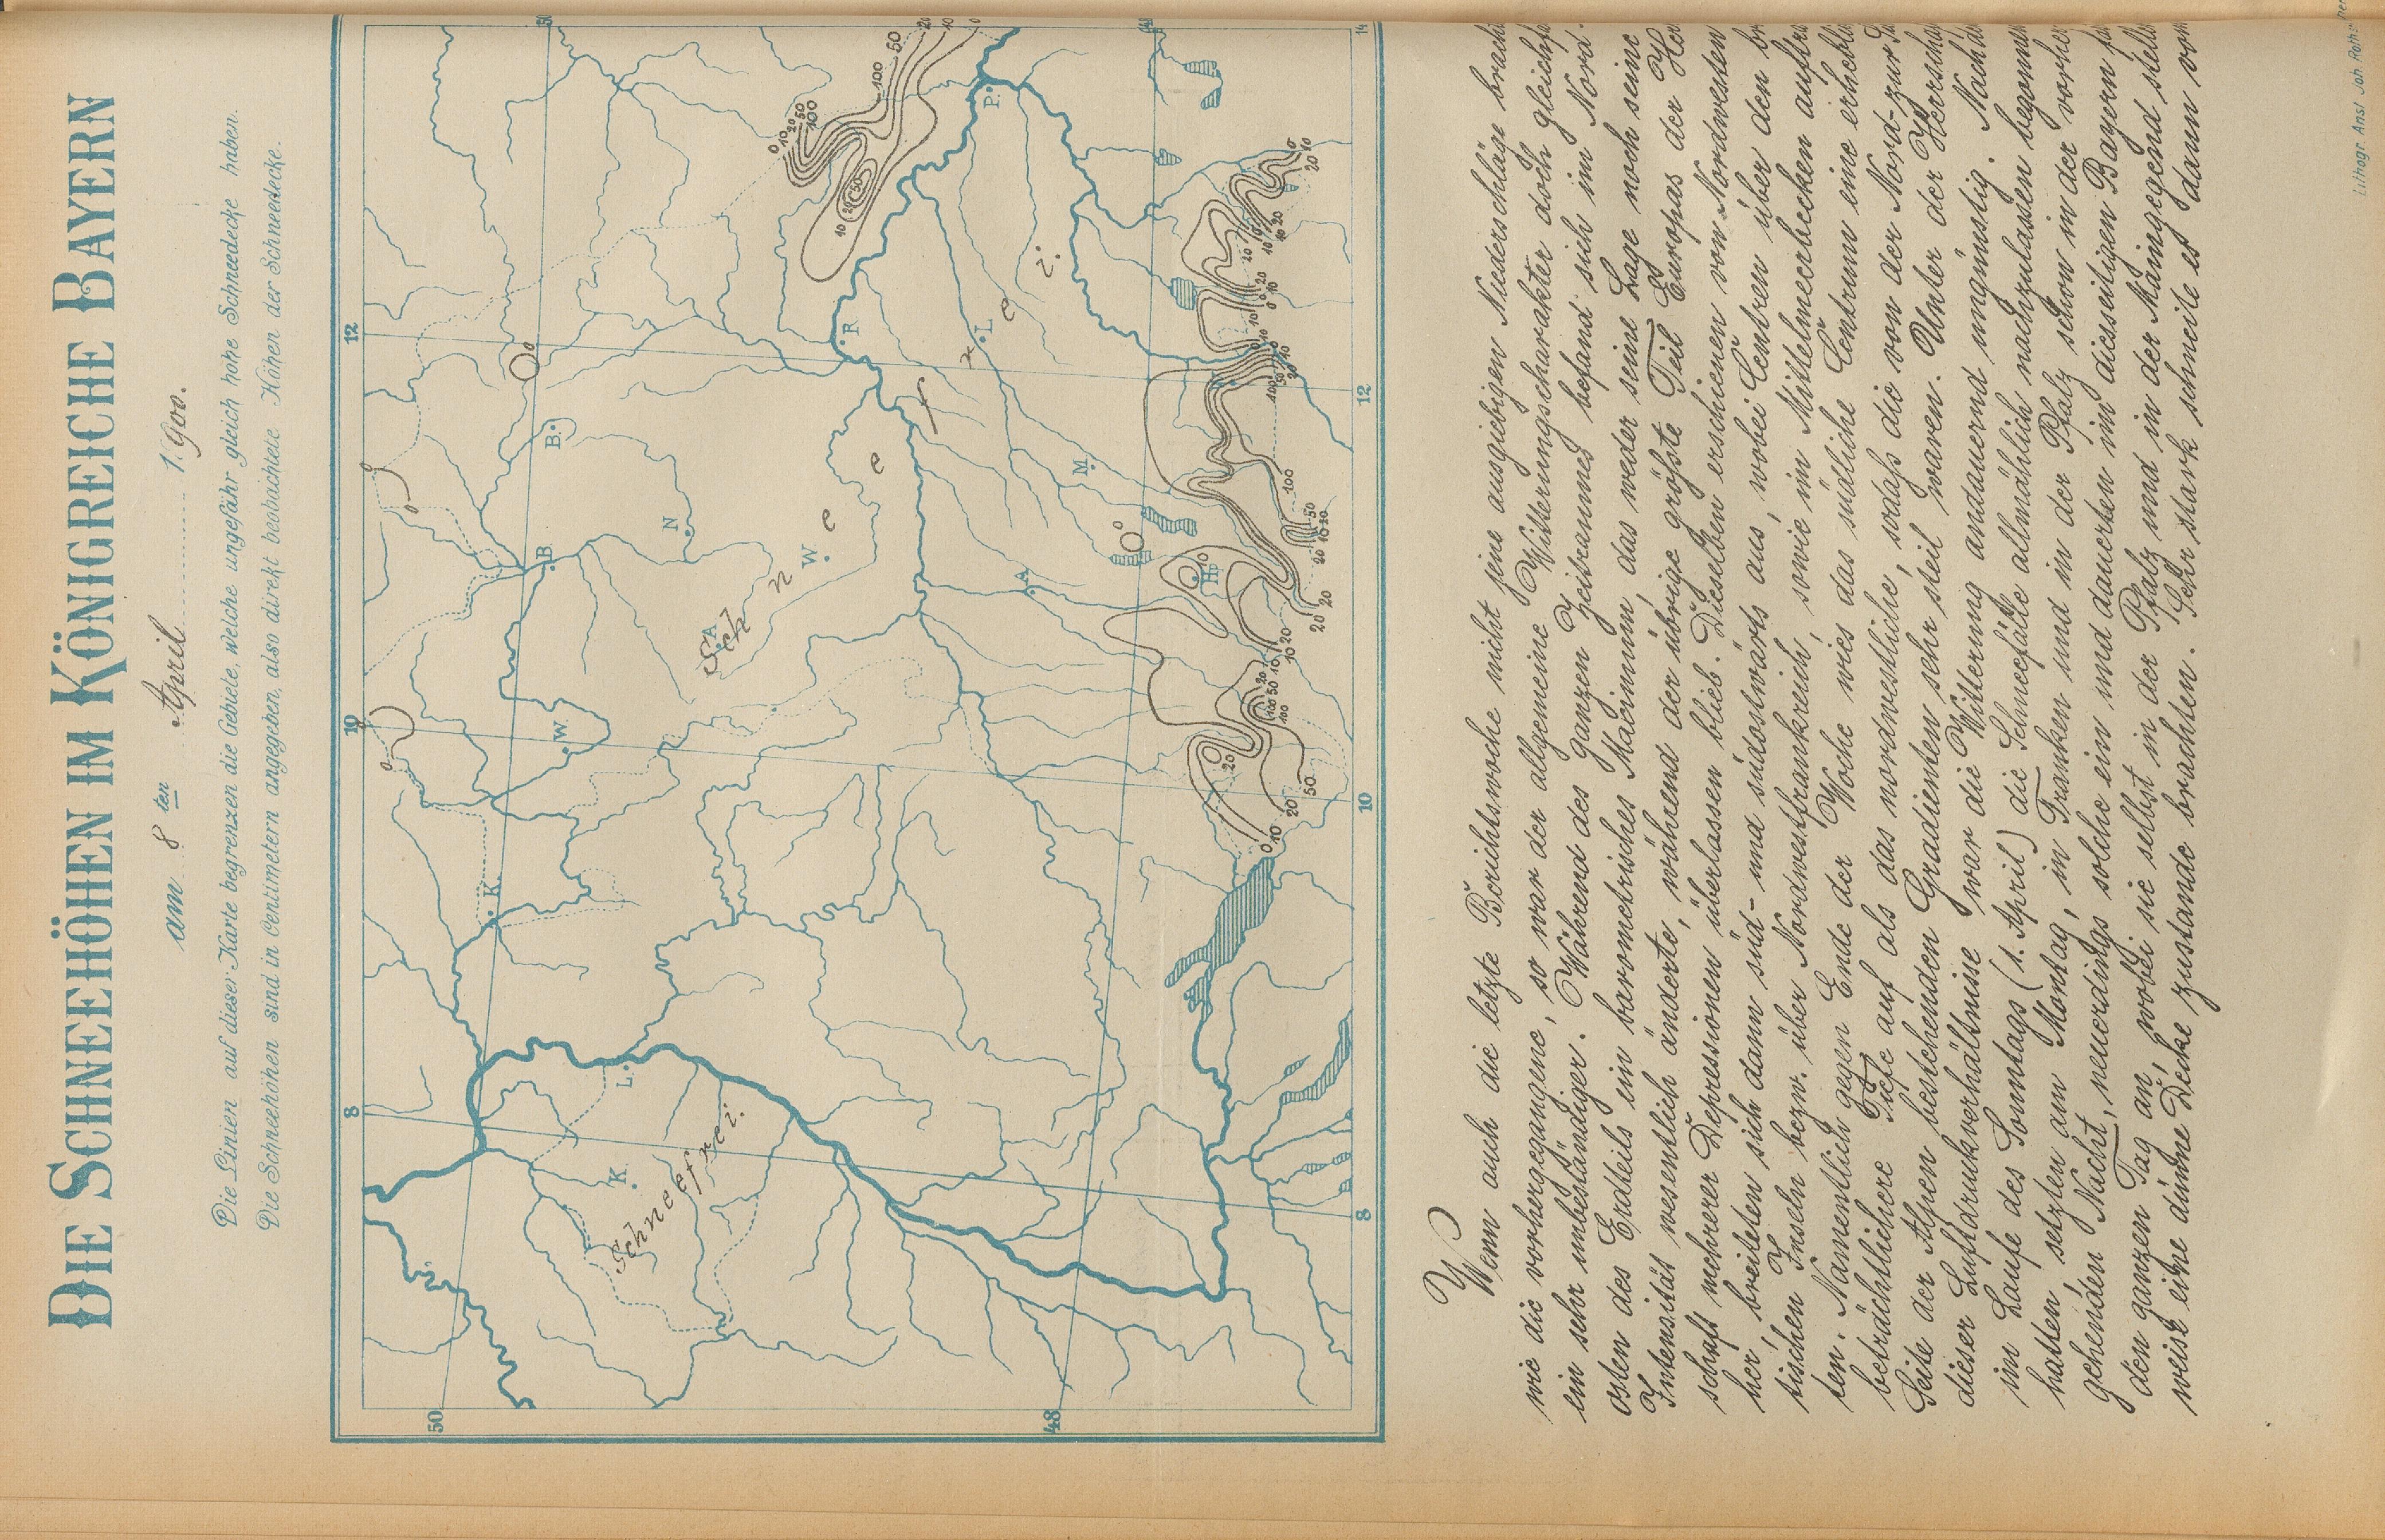 DIE SCHNEEHÖHEN IM KÖNIGREICHE BAYERN
am 8ten April 1900.
Die Linien auf dieser Karte begrenzen die Gebiete, welche ungefähr gleich hohe Schneedecke haben.
Die Schneehöhen sind in Centimetern angegeben, also direkt beobachtete Höhen der Schneedecke.
8
10
12
50
48
K.
L.
K.
W.
B.
B.
N
A
W
R
L
P.
A
M
Hp
Schneefrei.
Schneefrei.
0
10
20
50
100
8
10
12
14
Wenn auch die letzte Berichtswoche nicht jene ausgiebigen Niederschläge brach
wie die vorhergegangene, so war der allgemeine Witterungscharakter doch gleichf
ein sehr unbeständiger. Während des ganzen Zeitraumes befand sich im Nord-
osten des Erdteils ein barometrisches Maximum, das weder seine Lage noch seine
Intensität wesentlich änderte, während der übrige größte Teil Europas der Her
schaft mehrerer Depressionen überlassen blieb. Dieselben erschienen von Nordwesten
her, breiteten sich dann süd- und südostwärts aus, wobei Centren über den br
tischen Inseln bezw. über Nordwestfrankreich, sowie im Mittelmeerbecken auftra
ten. Namentlich gegen Ende der Woche wies das südliche Centrum eine erhebl
beträchtlichere Tiefe auf als das nordwestliche, sodaß die von der Nord- zur Sü
Seite der Alpen bestehenden Gradienten sehr steil waren. Unter der Herrscha
dieser Luftdruckverhältnisse war die Witterung andauernd ungünstig. Nachde
im Laufe des Sonntags (1. April) die Schneefälle allmählich nachzulassen begonne
hatten, setzten am Montag, in Franken und in der Pfalz schon in der vorher
gehenden Nacht, neuerdings solche ein und dauerten im diesseitigen Bayern
den ganzen Tag an, wobei sie selbst in der Pfalz und in der Maingegend stell
weise eine dünne Decke zustande brachten. Sehr stark schneite es dann vom
Lithogr. Anst. Joh. Roth